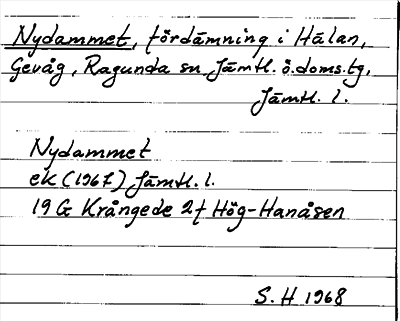 Nydammet, fördämning i Hålan,
Gevåg, Ragunda sn Jämtl. ö.doms.tg,
Jämtl. l.
Nydammet
ek (1967) Jämtl. l.
19 G Krångede 2f Hög-Hanåsen
S. H 1968